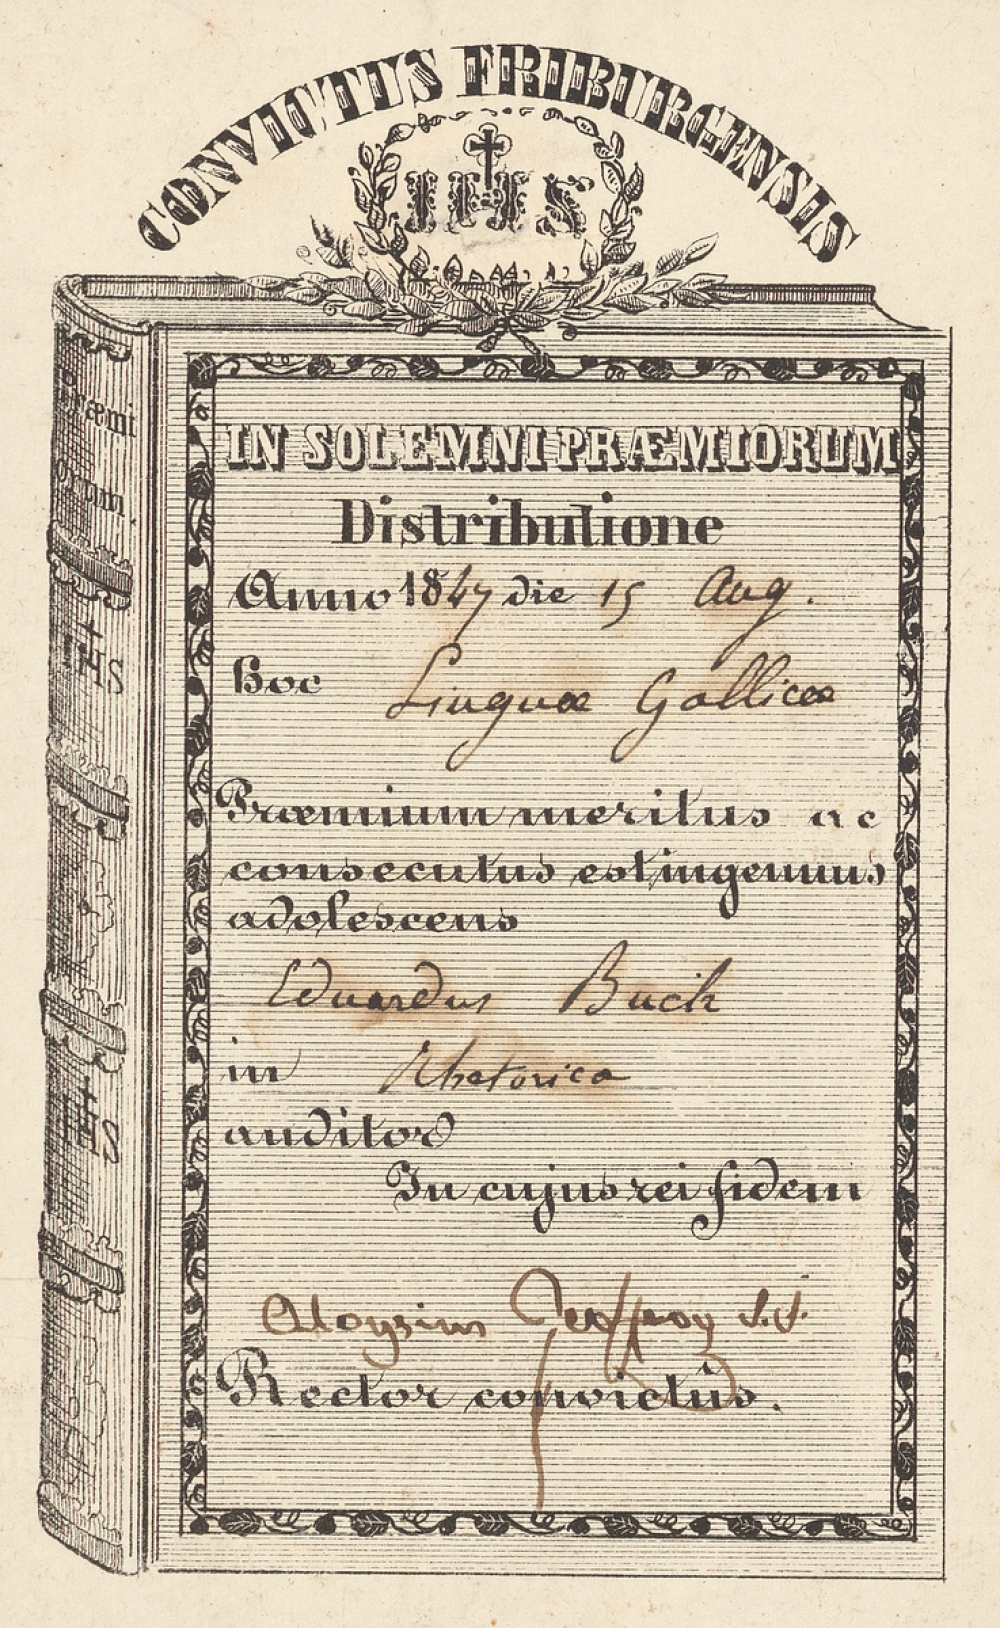 CONVICTUS FRIBURGENSIS
IHS
Præmi
orum.
IHS
IHS
IN SOLEMNI PRÆMIORUM
Distributione
Anno 1847 die 15 Aug.
hoc Linguæ Gallicæ
Præmium meritus ac
consecutus est ingenuus
adolescens
Eduardus Buck
in Rhetorica
auditor
In cujus rei fidem
Aloysius S.J.
Rector convictûs.